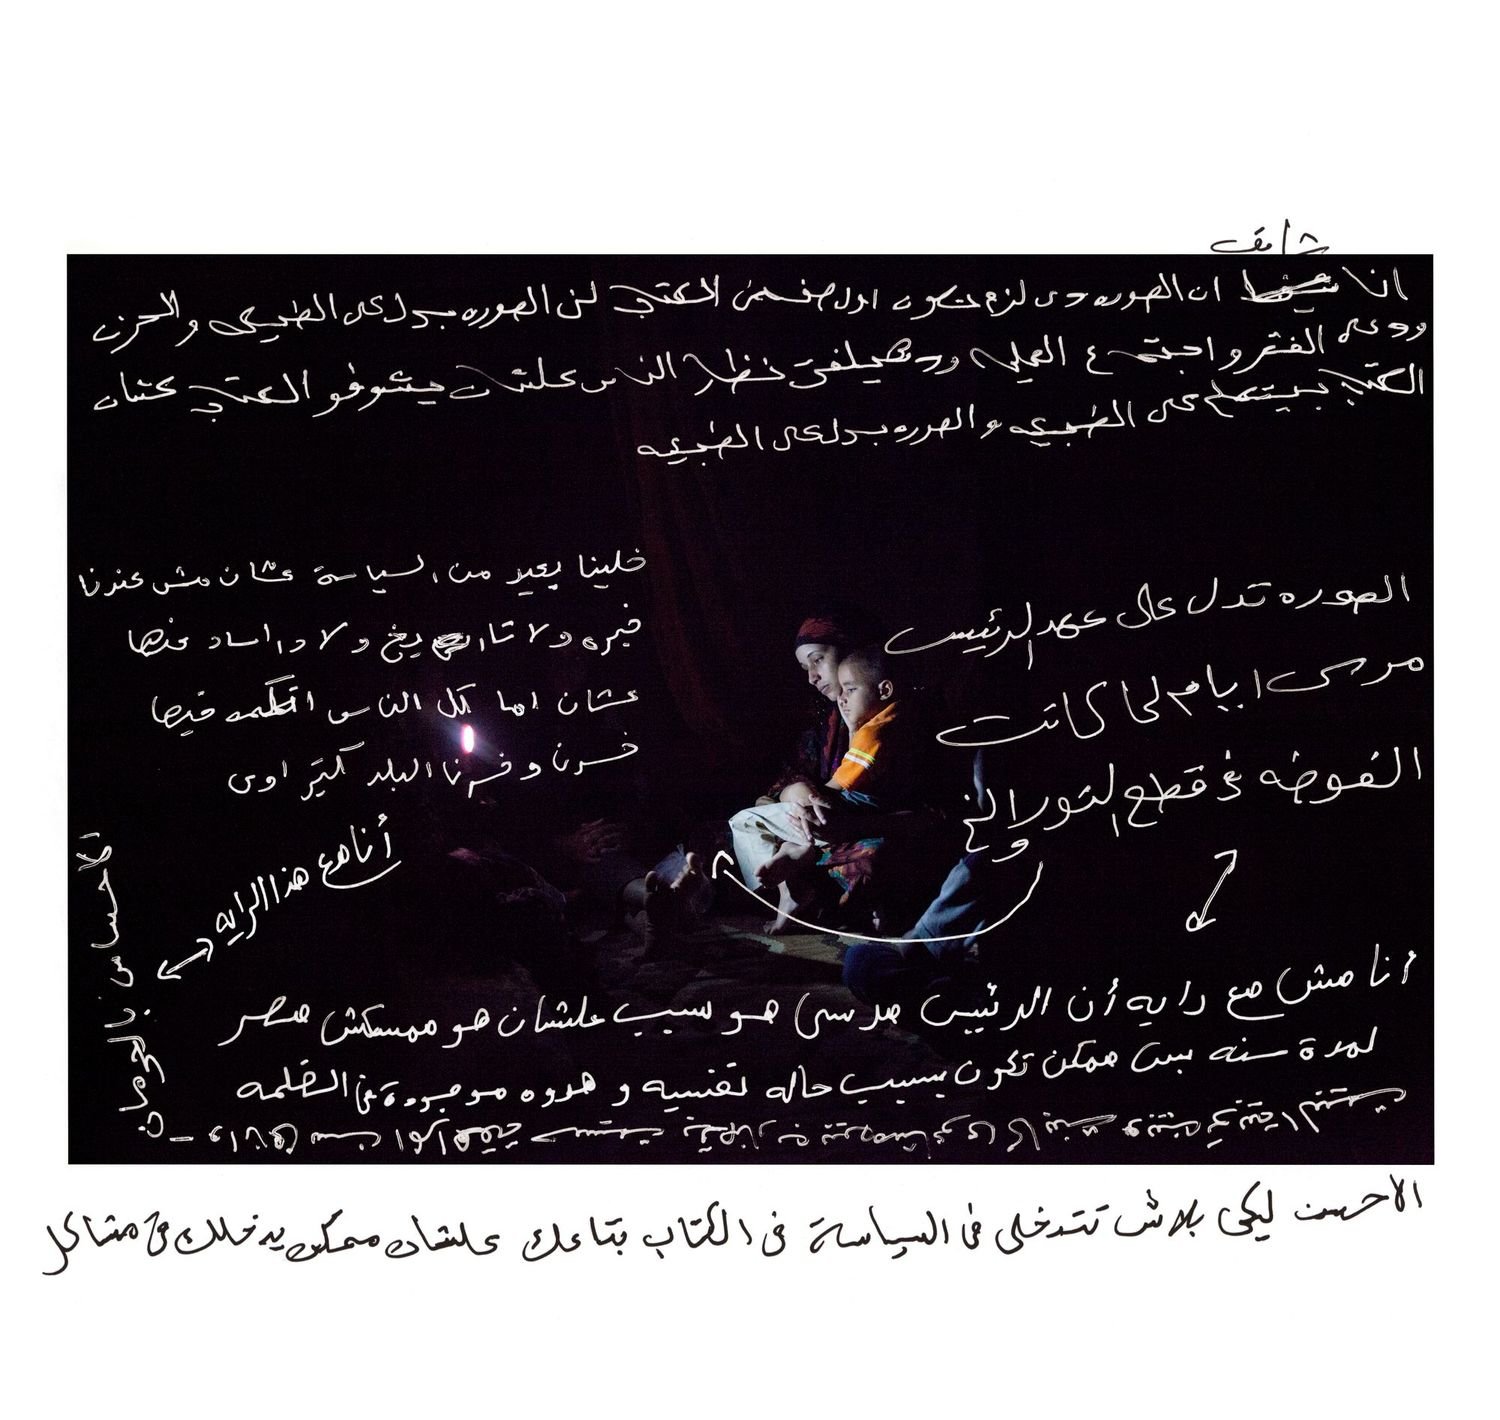 شايف
انا ان الصوره دى لزم تكون اول صفحة فى الكتاب لن الصوره بدل على الطبيعى والحزن
الفقر واجتماع العيله وده هيلفت نظر الناس علشان يشوفو الكتاب كمان
الكتاب بيتكلم على الطبيعه والصوره بدل على الطبيعه
خلينا بعيد من السياسة عشان مش عندنا
خبره ولا تاريخ ولا دراسات عنها
عشان لما كل الناس اتكلمه فيها
خسرنا وخسرنا البلد كتير اوى
الصوره تدل على عهد الرئيس
مرسى ايام لما كانت
الفوضه فى قطع النور الخ
أنا مع هذا الرايه
أنا مش مع رايه أن الرئيس مرسى هو سبب علشان هو ممسكش مصر
لمدة سنه بس ممكن تكون بسبب حاله نفسيه و هدوه موجودة فى الظلمه
الاحساس بالحزن
الاحسن ليكى بلاش تتدخلى فى السياسة فى الكتاب بتاعك علشان ممكن يدخلك فى مشاكل